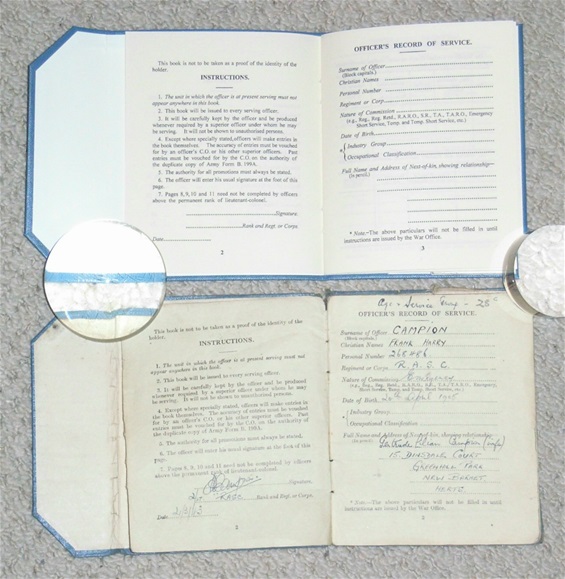 This book is not to be taken as a proof of the identity of the
holder.
INSTRUCTIONS.
1. The unit in which the officer is at present serving must not
appear anywhere in this book.
2. This book will be issued to every serving officer.
3. It will be carefully kept by the officer and be produced
whenever required by a superior officer under whom he may
be serving. It will not be shown to unauthorised persons.
4. Except where specially stated, officers will make entries in
the book themselves. The accuracy of entries must be vouched
for by an officer's C.O. or his other superior officers. Past
entries must be vouched for by the C.O. on the authority of
the duplicate copy of Army Form B. 199A.
5. The authority for all promotions must always be stated.
6. The officer will enter his usual signature at the foot of this
page.
7. Pages 8, 9, 10 and 11 need not be completed by officers
above the permanent rank of lieutenant-colonel.
Signature.
Rank and Regt. or Corps.
Date
2
OFFICER'S RECORD OF SERVICE.
Surname of Officer
(Block capitals.)
Christian Names
Personal Number
Regiment or Corps
Nature of Commission
(e.g., Reg., Reg. Retd., R.A.R.O., S.R., T.A., T.A.R.O., Emergency,
Short Service, Temp. and Temp. Short Service, etc.)
Date of Birth
* Industry Group
Occupational Classification
Full Name and Address of Next-of-kin, showing relationship—
(In pencil.)
* Note.—The above particulars will not be filled in until
instructions are issued by the War Office.
3
This book is not to be taken as a proof of the identity of the
holder.
INSTRUCTIONS.
1. The unit in which the officer is at present serving must not
appear anywhere in this book.
2. This book will be issued to every serving officer.
3. It will be carefully kept by the officer and be produced
whenever required by a superior officer under whom he may
be serving. It will not be shown to unauthorised persons.
4. Except where specially stated, officers will make entries in
the book themselves. The accuracy of entries must be vouched
for by an officer's C.O. or his other superior officers. Past
entries must be vouched for by the C.O. on the authority of
the duplicate copy of Army Form B. 199A.
5. The authority for all promotions must always be stated.
6. The officer will enter his usual signature at the foot of this
page.
7. Pages 8, 9, 10 and 11 need not be completed by officers
above the permanent rank of lieutenant-colonel.
Signature.
RASC Rank and Regt. or Corps.
Date
2
Service
OFFICER'S RECORD OF SERVICE.
Surname of Officer CAMPION
(Block capitals.)
Christian Names FRANK HARRY
Personal Number
Regiment or Corps R.A.S.C.
Nature of Commission Emergency
(e.g., Reg., Reg. Retd., R.A.R.O., S.R., T.A., T.A.R.O., Emergency,
Short Service, Temp. and Temp. Short Service, etc.)
Date of Birth April 1905
* Industry Group
Occupational Classification
Full Name and Address of Next-of-kin, showing relationship—
(In pencil.) Gertrude Campion (wife)
15 DINSDALE COURT
GREENHILL PARK
NEW BARNET
HERTS.
* Note.—The above particulars will not be filled in until
instructions are issued by the War Office.
3